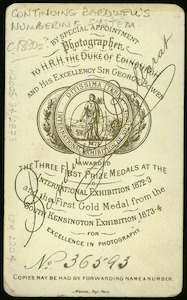 CONTINUING BARDWELL'S
NUMBERING SYSTEM
C1890s?
BY SPECIAL APPOINTMENT
Photographer,
TO H.R.H. THE DUKE OF EDINBURGH
AND HIS EXCELLENCY SIR GEORGE BOWEN
AWARDED
THE THREE FIRST PRIZE MEDALS AT THE
INTERNATIONAL EXHIBITION 1872-3
and the First Gold Medal from the
SOUTH KENSINGTON EXHIBITION 1873-4
FOR
EXCELLENCE IN PHOTOGRAPHY
No 36593
COPIES MAY BE HAD BY FORWARDING NAME & NUMBER.